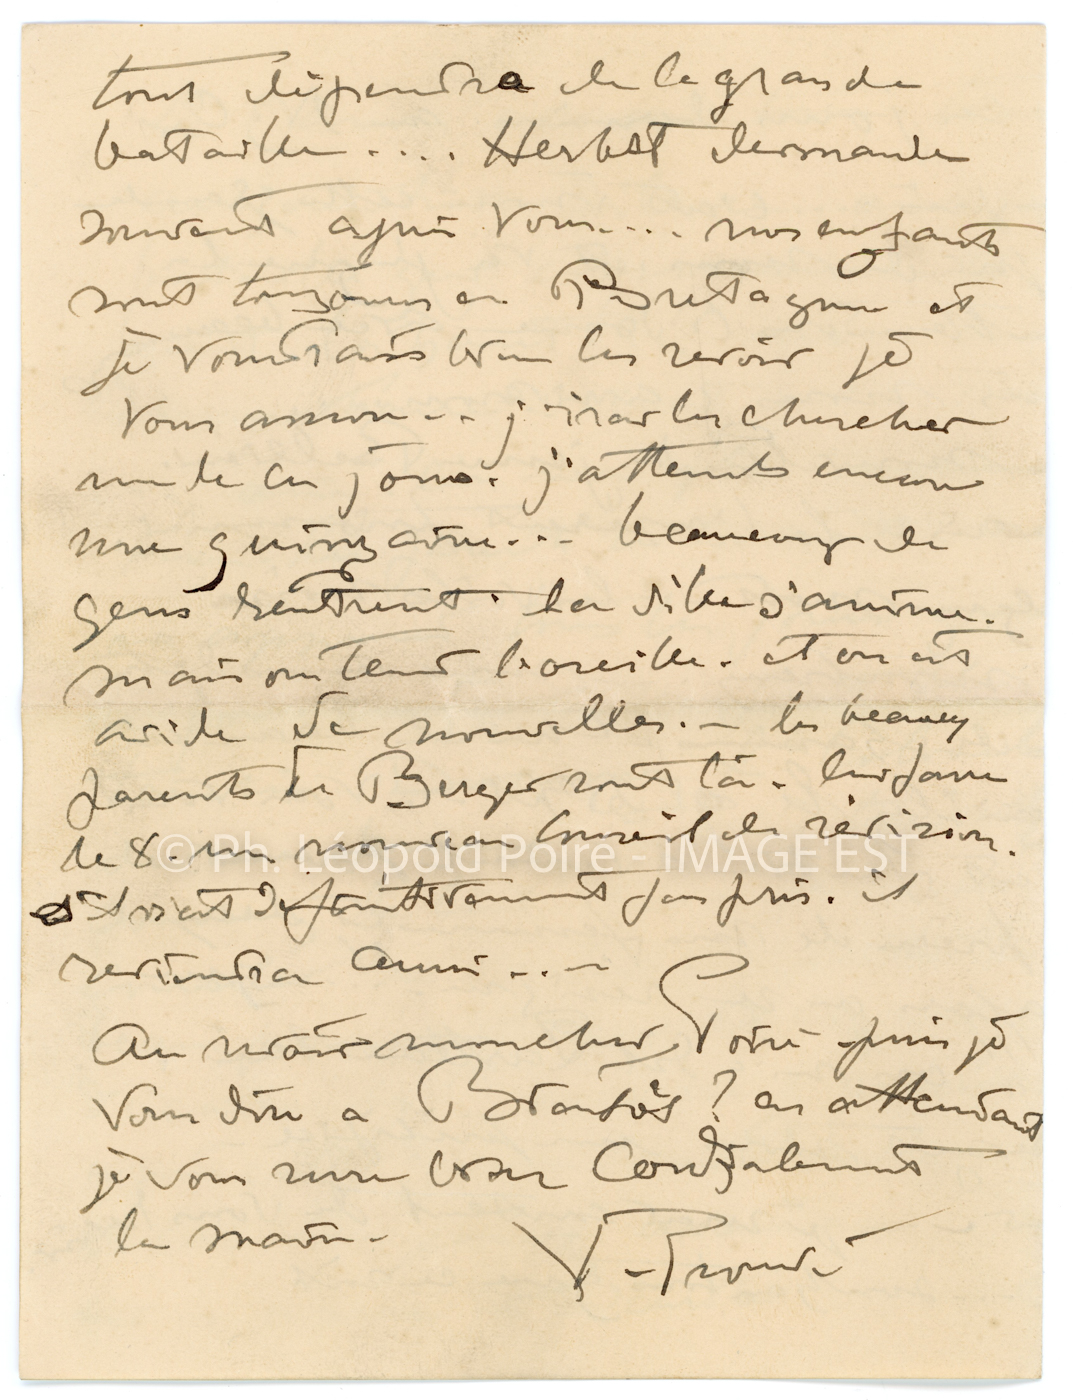 tout dépendra de la grande
bataille.... Herbst demande
souvent après vous.... nos enfants
sont toujours en Bretagne et
je voudrais bien les revoir je
vous assure... j'irai les chercher
un de ces jours. j'attends encore
une quinzaine... beaucoup de
gens rentrent. la ville s'anime.
mais on tend l'oreille. et on est
avide de nouvelles. — les beaux
parents de Berger sont là.
le 8. un nouveau Conseil de révision.
s'il n'est définitivement pas pris. il
reviendra aussi...—
Au revoir mon cher Poiré puis je
vous dire a Bientôt? en attendant
je vous serre bien Cordialement
la main.-
V-Prouvé
© Ph. Léopold Poiré - IMAGE'EST